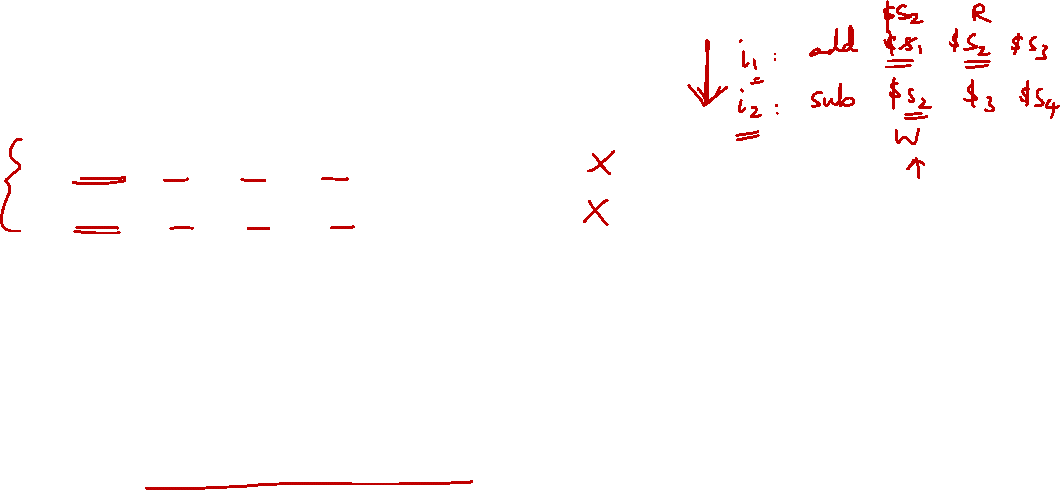 $s2 R
i1: add $s1 $s2 $s3
i2: sub $s2 $3 $s4
W
X
X